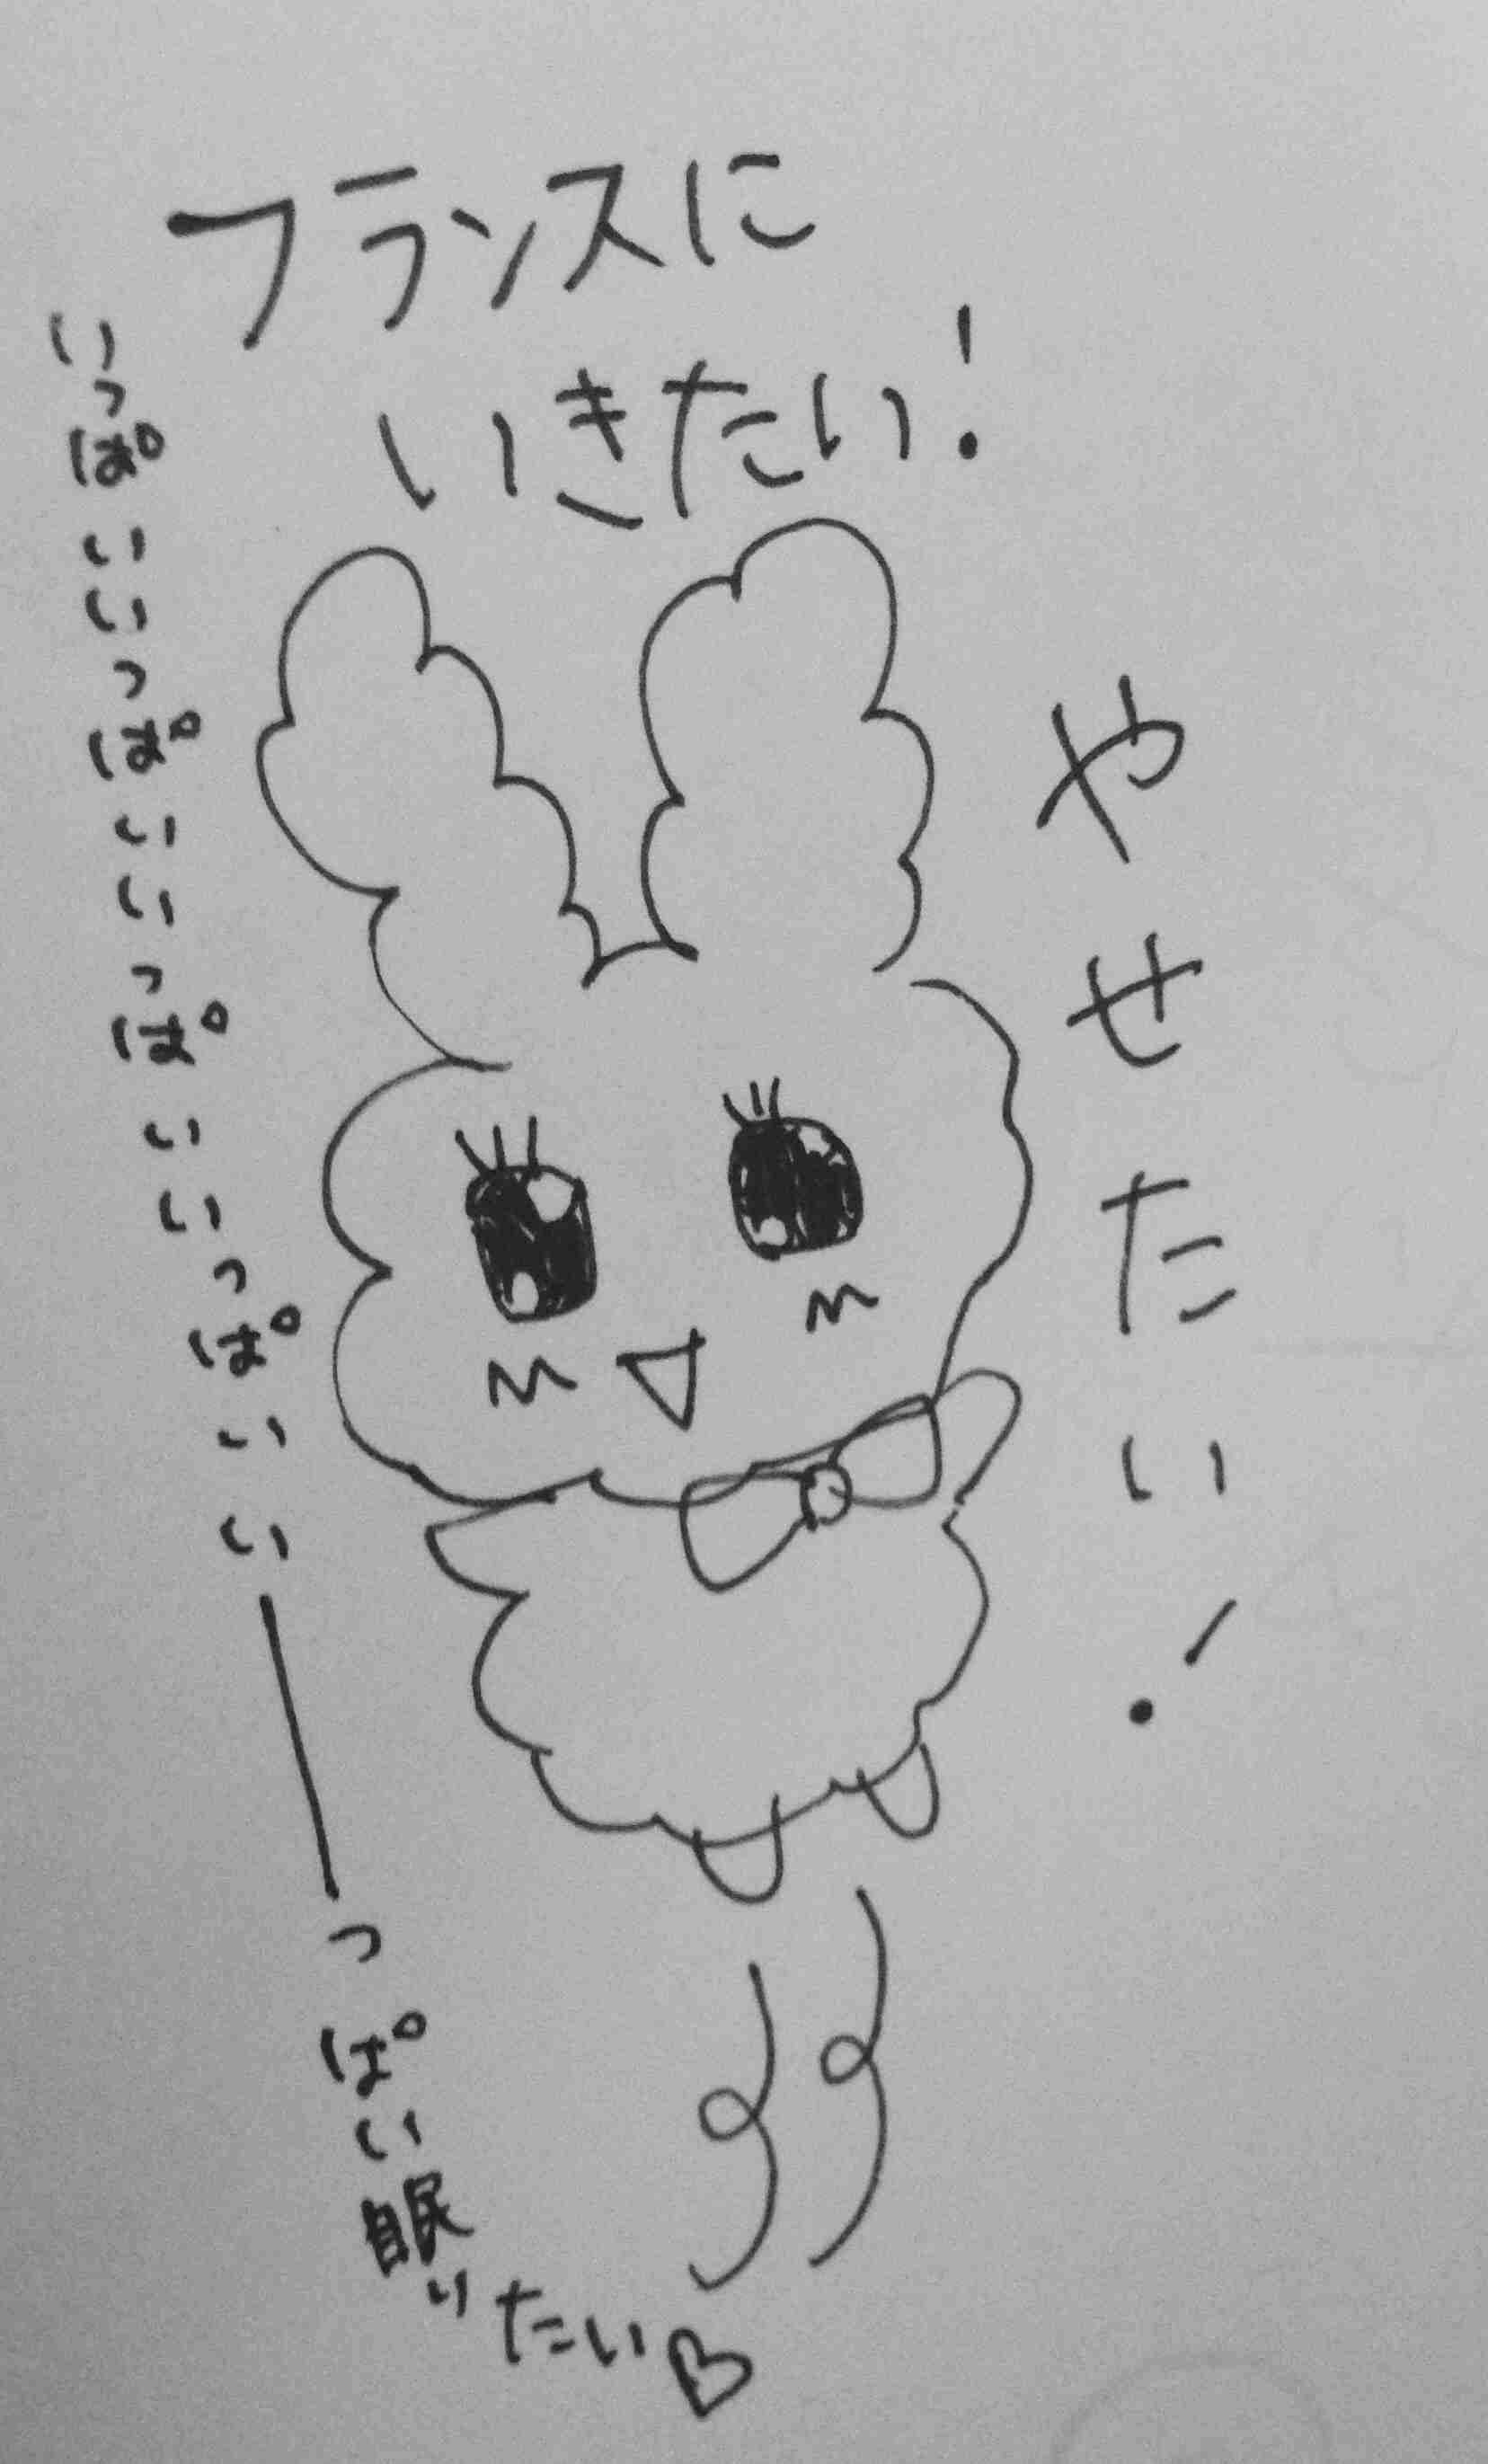 フランスに
いきたい!
やせたい!
いっぱいいっぱいいっぱいいっぱいいーっぱい眠りたい♡